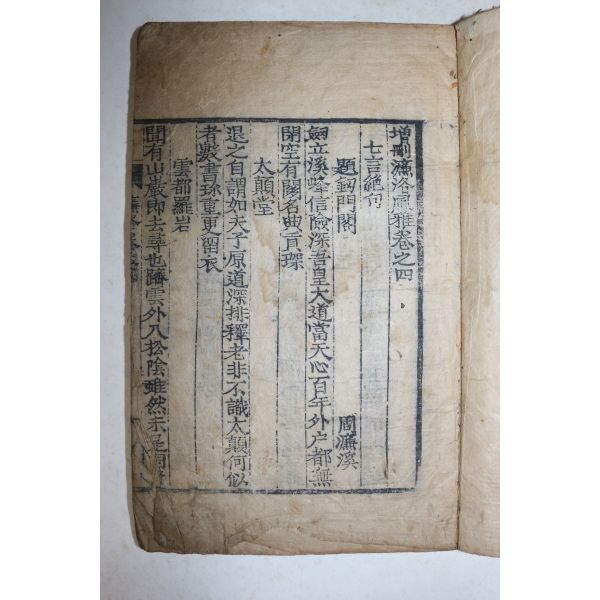 增刪濂洛風雅卷之四
七言絶句
題劒門閣 周濂溪
劒立溪峰信險深吾皇大道當天心百年外户都無
閉空有關名典貢琛
太顛堂
退之自謂如夫子原道深排釋老非不識太顛何似
者數書珍重更留衣
雲都羅岩
聞有山巖即去尋也躋雲外入松陰雖然未是